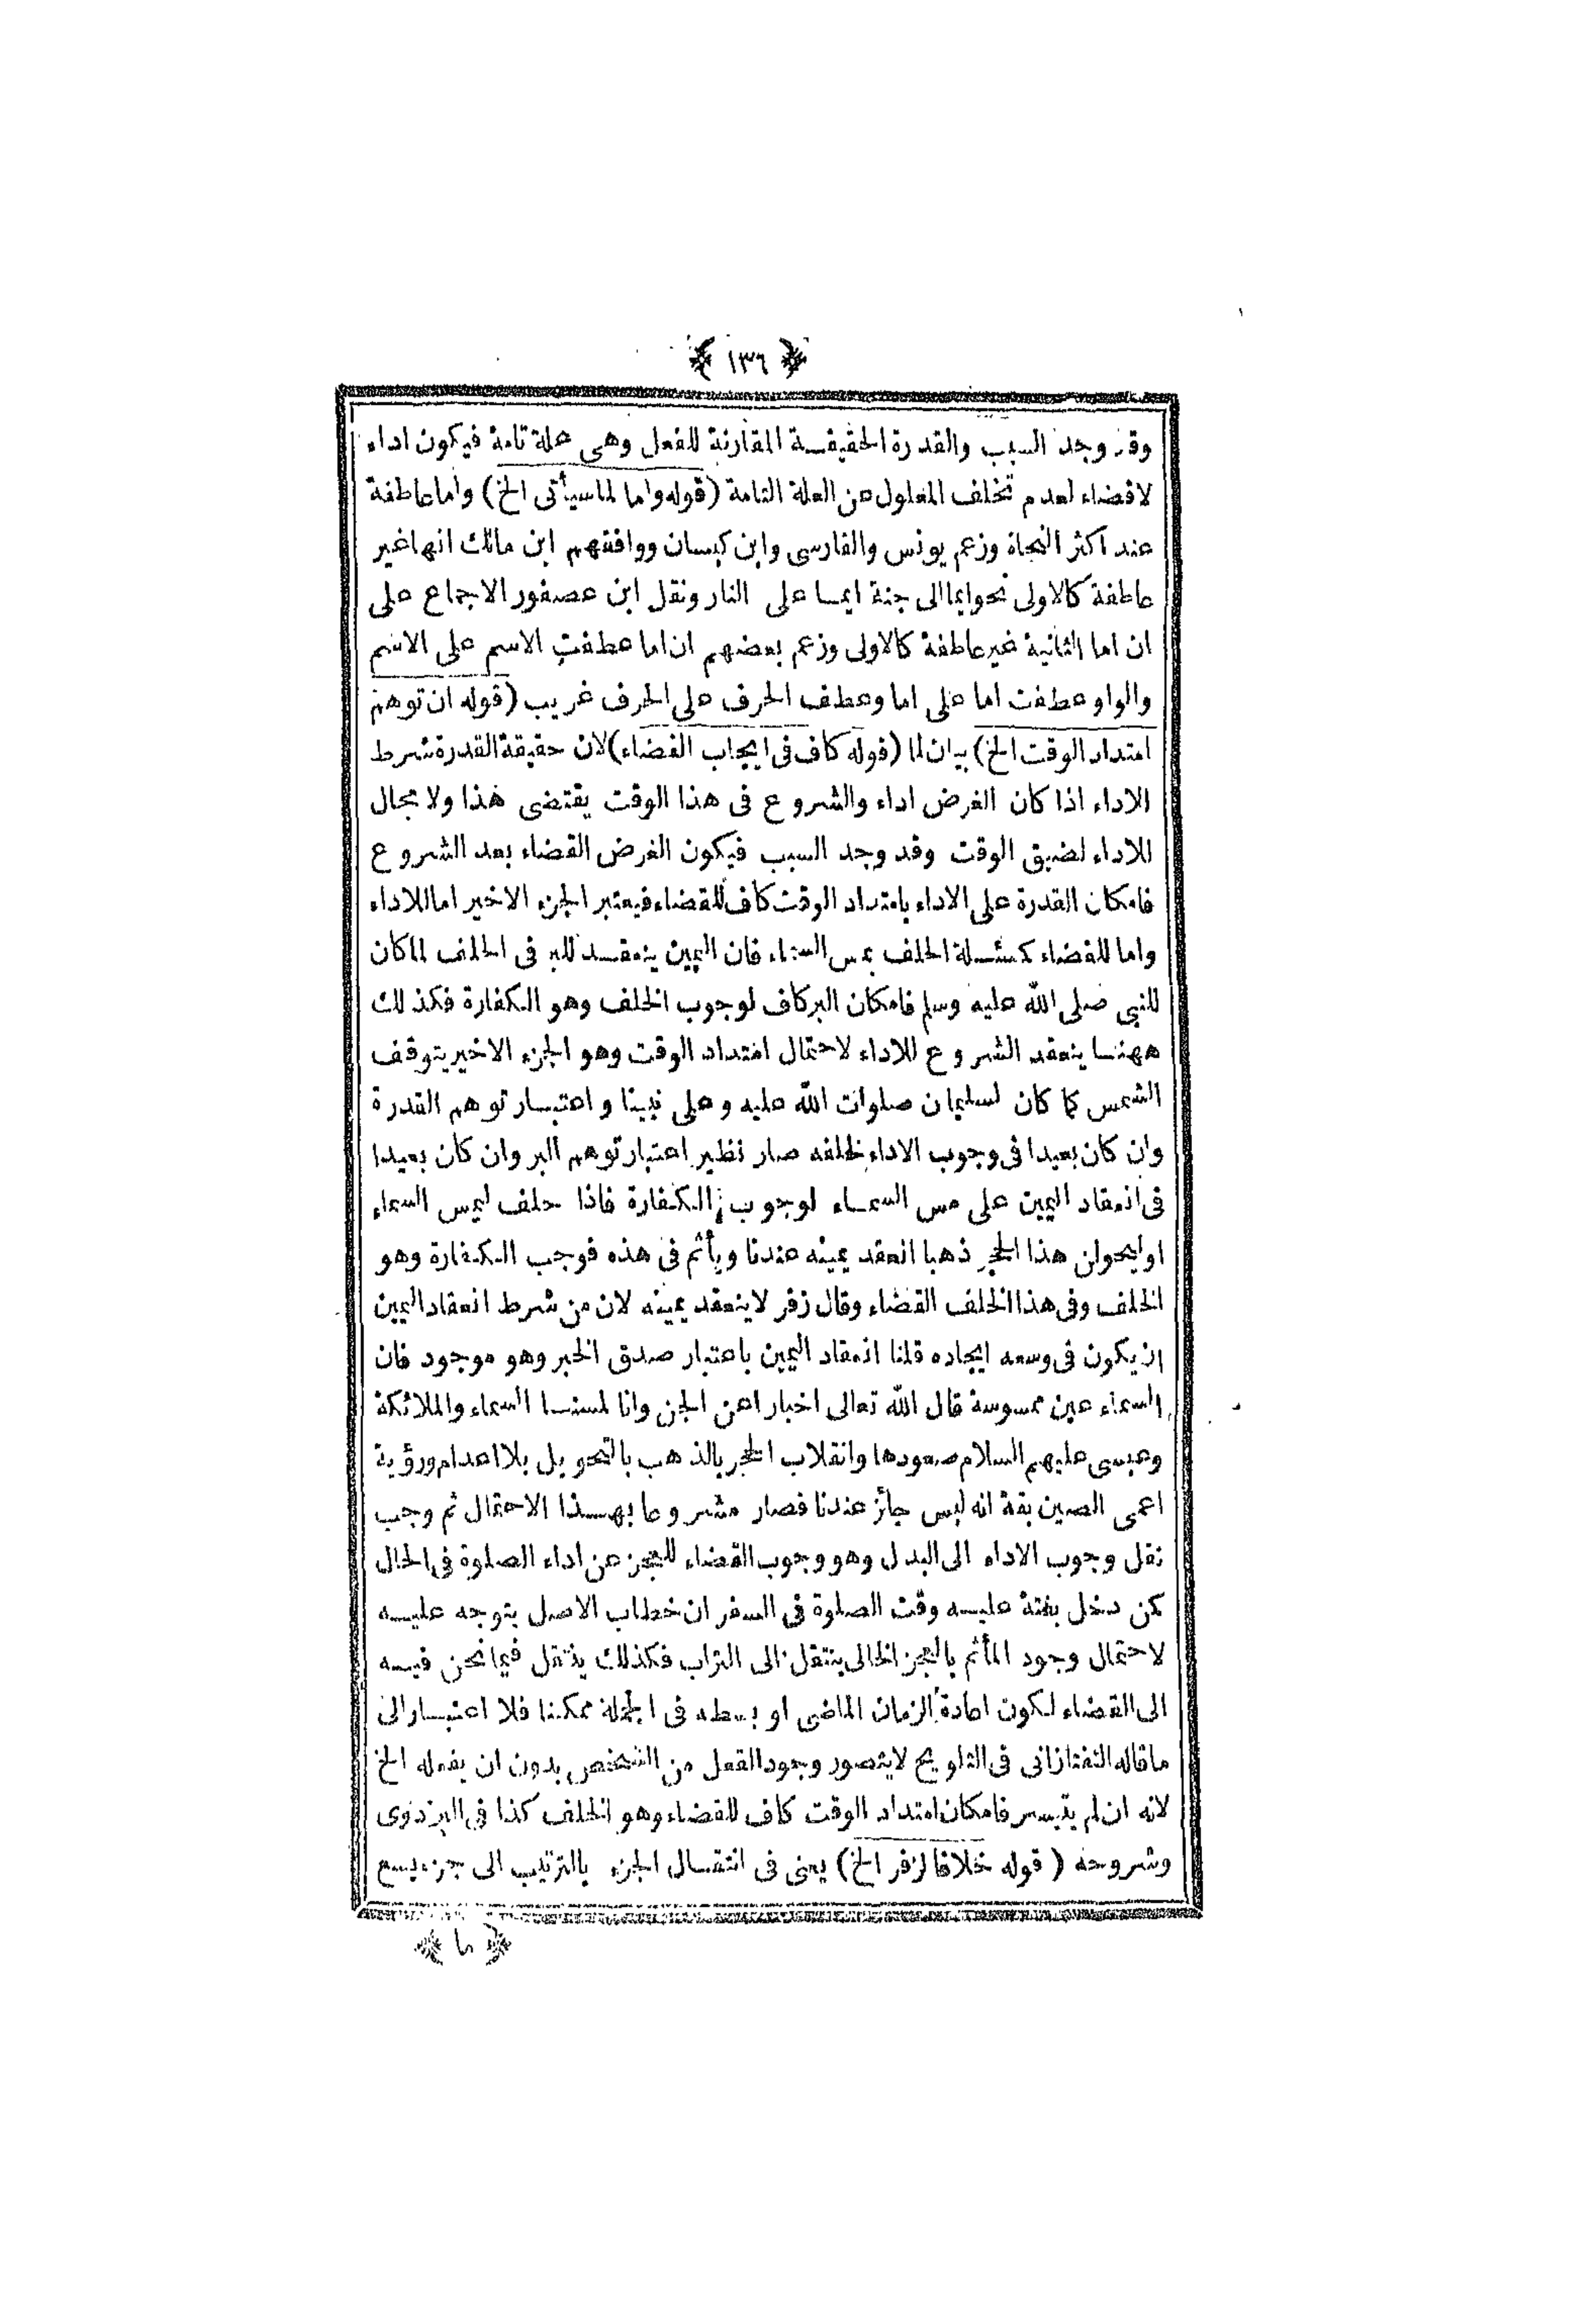 ﴿ ١٣٦ ﴾
وقد وجد السبب والقدرة الحقيقية المقارنة للفعل وهى علة تامة فيكون اداء
لاقضاء لعدم تخلف المعلول عن العلة التامة (قوله واما لماسيأتى الخ) واما عاطفة
عند اكثر النحاة وزعم يونس والفارسى وابن كيسان ووافقهم ابن مالك انها غير
عاطفة كالاولى نحو ايما الى جنة ايما على النار ونقل ابن عصفور الاجماع على
ان اما الثانية غير عاطفة كالاولى وزعم بعضهم ان اما عطفت الاسم على الاسم
والواو عطفت اما على اما وعطف الحرف على الحرف غريب (قوله ان توهم
امتداد الوقت الخ) بيان لما (قوله كاف فى ايجاب القضاء) لان حقيقة القدرة شرط
الاداء اذا كان الغرض اداء والشروع فى هذا الوقت يقتضى هذا ولا مجال
للاداء لضيق الوقت وقد وجد السبب فيكون الغرض القضاء بعد الشروع
فامكان القدرة على الاداء بامتداد الوقت كاف للقضاء فيعتبر الجزء الاخير اما للاداء
واما للقضاء كمسئلة الحلف بمس السماء فان اليمين ينعقد للبر فى الحلف لما كان
للنبى صلى الله عليه وسلم فامكان البر كاف لوجوب الخلف وهو الكفارة فكذلك
ههنا ينعقد الشروع للاداء لاحتمال امتداد الوقت وهو الجزء الاخير يتوقف
الشمس كما كان لسليمان صلوات الله عليه وعلى نبينا واعتبار توهم القدرة
وان كان بعيدا فى وجوب الاداء لخلفه صار نظير اعتبار توهم البر وان كان بعيدا
فى انعقاد اليمين على مس السماء لوجوب الكفارة فاذا حلف ليمس السماء
او ليحولن هذا الحجر ذهبا انعقد يمينه عندنا ويأثم فى هذه فوجب الكفارة وهو
الخلف وفى هذا الخلف القضاء وقال زفر لاينعقد يمينه لان من شرط انعقاد اليمين
ان يكون فى وسعه ايجاده قلنا انعقاد اليمين باعتبار صدق الخبر وهو موجود فان
السماء عين ممسوسة قال الله تعالى اخبارا عن الجن وانا لمسنا السماء والملائكة
وعيسى عليهم السلام صعودها وانقلاب الحجر بالذهب بالتحويل بلا اعدام ورؤية
اعمى الصين بقة انه ليس جائز عندنا فصار مشروعا بهذا الاحتمال ثم وجب
نقل وجوب الاداء الى البدل وهو وجوب القضاء للعجز عن اداء الصلوة فى الحال
كمن دخل بغتة عليه وقت الصلوة فى السفر ان خطاب الاصل يتوجه عليه
لاحتمال وجود المأثم بالعجز الحالى ينتقل الى التراب فكذلك ينتقل فيما نحن فيه
الى القضاء لكون اعادة الزمان الماضى او بسطه فى الجملة ممكنا فلا اعتبار الى
ماقاله التفتازانى فى التلويح لايتصور وجود الفعل من الشخص بدون ان يفعله الخ
لانه ان لم يتيسر فامكان امتداد الوقت كاف للقضاء وهو الخلف كذا فى البزدوى
وشروحه (قوله خلافا لزفر الخ) يعنى فى انتقال الجزء بالترتيب الى جزء يسع
﴿ ما ﴾